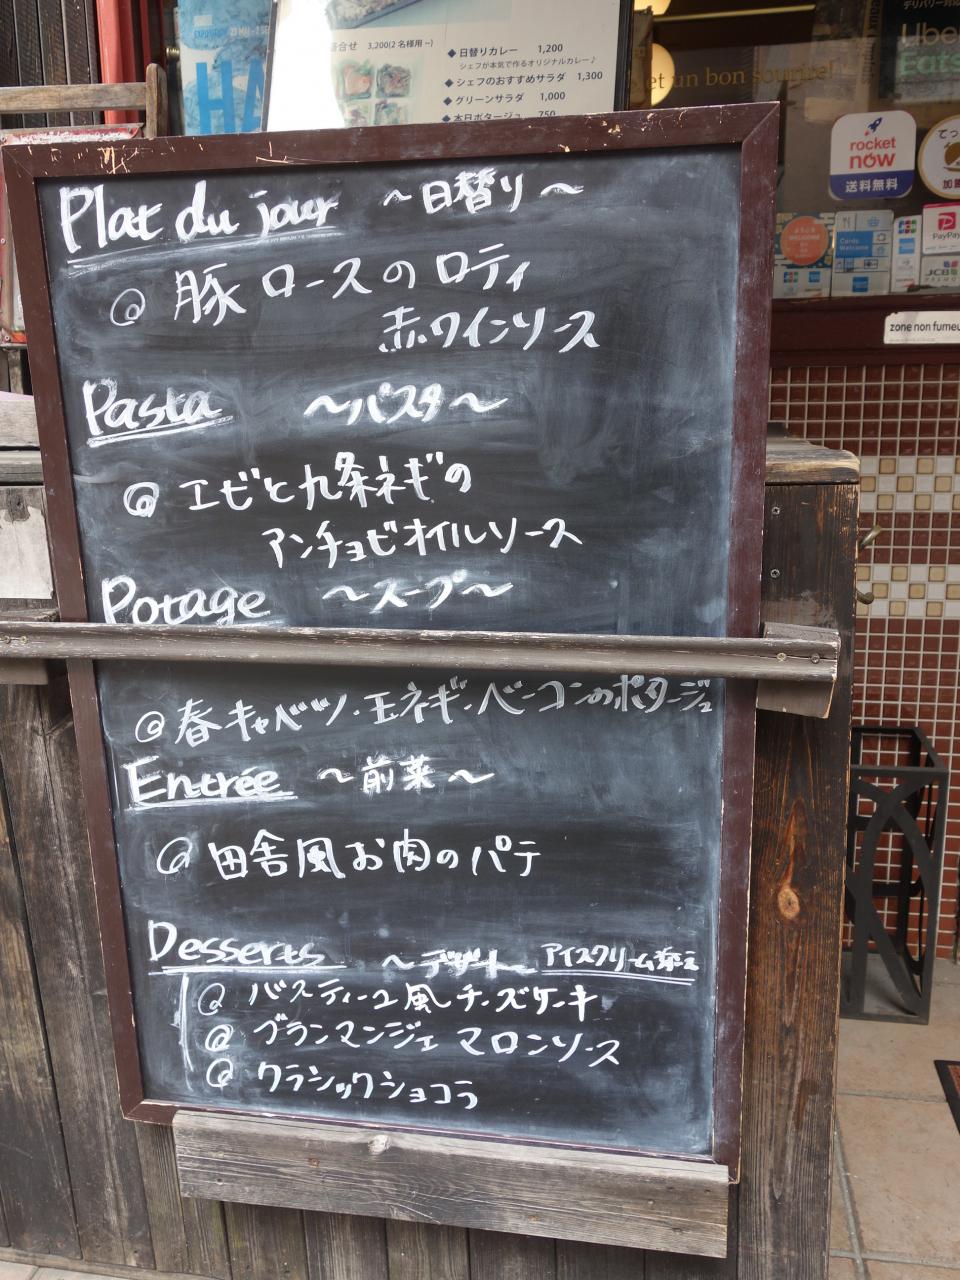 3,200(2名様用~)
◆日替りカレー 1,200
シェフが本気で作るオリジナルカレー♪
◆シェフのおすすめサラダ 1,300
◆グリーンサラダ 1,000
◆本日ポタージュ 750
et un bon sourire!
Uber
Eats
rocket
now
送料無料
Cards
Welcome
PayPay
JCB
zone non fumeu
Plat du jour ~日替り~
@ 豚ロースのロティ
赤ワインソース
Pasta ~パスタ~
@ エビと九条ネギの
アンチョビオイルソース
Potage ~スープ~
@ 春キャベツ・玉ネギ・ベーコンのポタージュ
Entrée ~前菜~
@ 田舎風お肉のパテ
Desserts ~デザート アイスクリーム添え
@ バスティーユ風チーズケーキ
@ ブランマンジェ マロンソース
@ クラシックショコラ